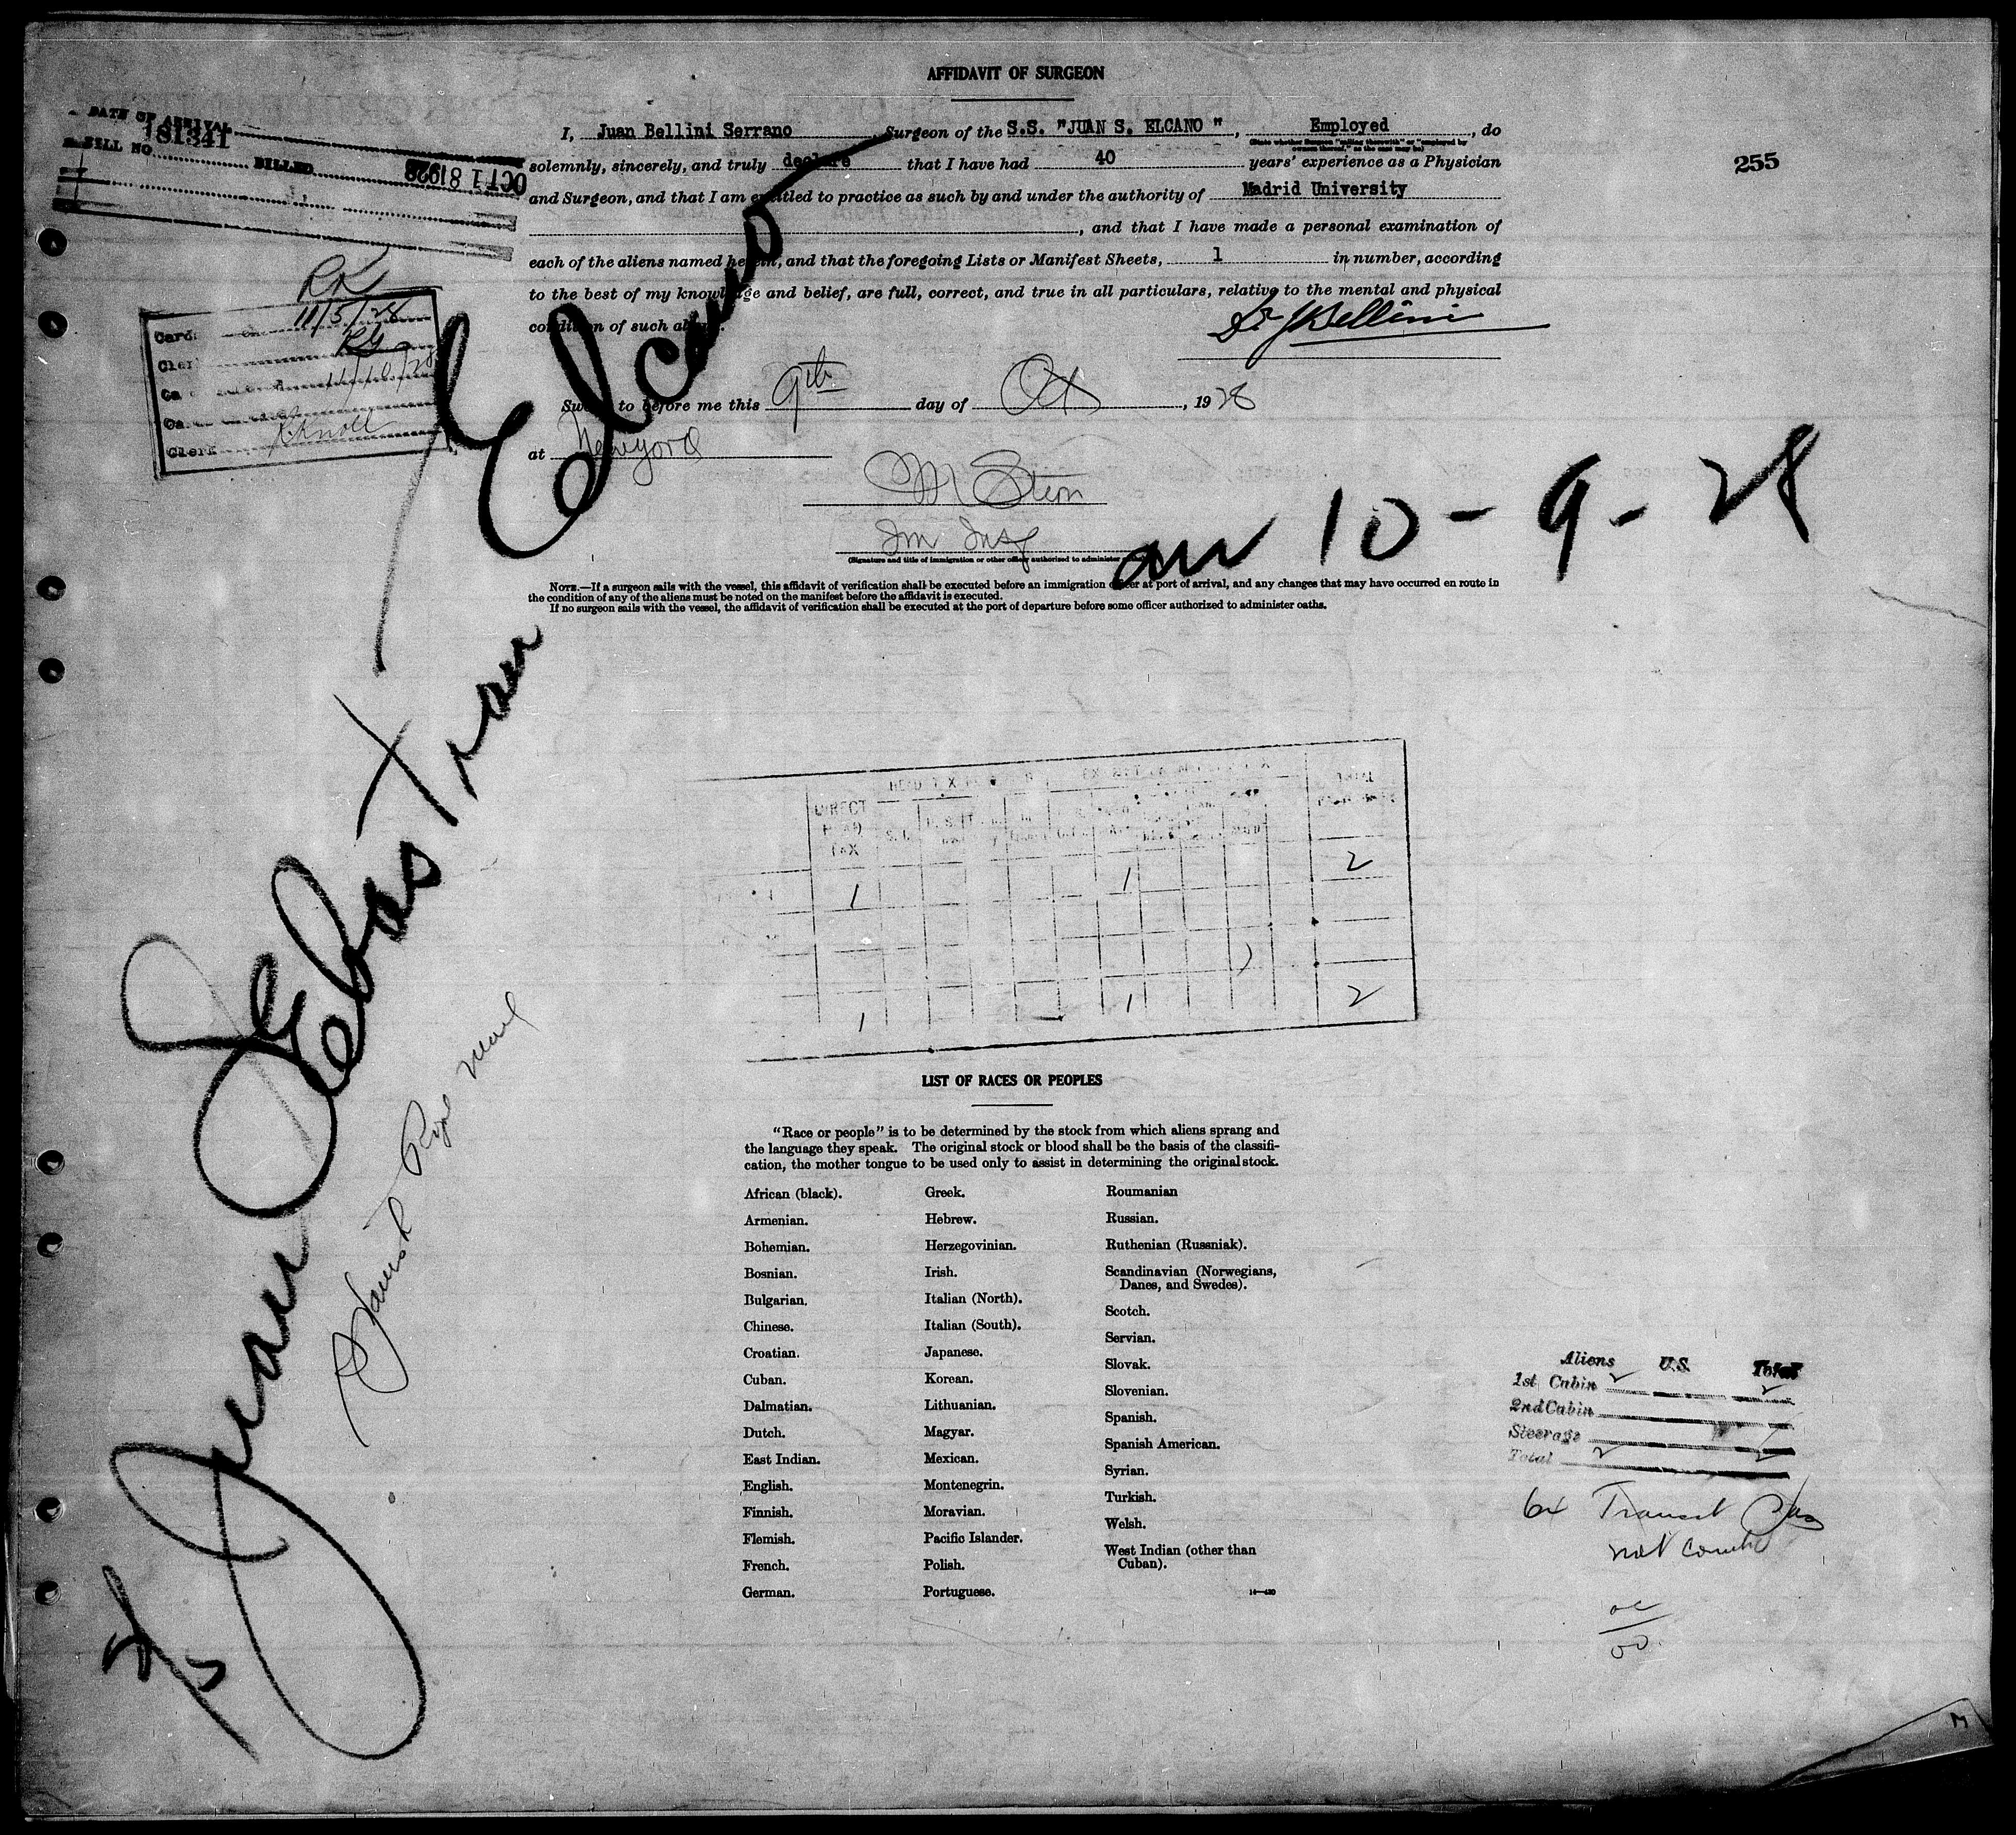 AFFIDAVIT OF SURGEON
255
DATE OF ARRIVAL
BILL NO. 181341 BILLED OCT 18 1928
I, Juan Bellini Serrano Surgeon of the S.S. "JUAN S. ELCANO ", Employed, do
(State whether Surgeon "sailing therewith" or "employed by owners thereof," as the case may be)
solemnly, sincerely, and truly declare that I have had 40 years' experience as a Physician
and Surgeon, and that I am entitled to practice as such by and under the authority of Madrid University
, and that I have made a personal examination of
each of the aliens named herein, and that the foregoing Lists or Manifest Sheets, 1 in number, according
to the best of my knowledge and belief, are full, correct, and true in all particulars, relative to the mental and physical
condition of such aliens.
Dr JBellini
RK
Card 11/5/28
Cler RG
Ca 11/10/28
Clerk Knoll
Sworn to before me this 9th day of Oct, 1928
at Newyork
M Stern
Im Insp
(Signature and title of immigration or other officer authorized to administer
arr 10-9-28
NOTE.—If a surgeon sails with the vessel, this affidavit of verification shall be executed before an immigration officer at port of arrival, and any changes that may have occurred en route in
the condition of any of the aliens must be noted on the manifest before the affidavit is executed.
If no surgeon sails with the vessel, the affidavit of verification shall be executed at the port of departure before some officer authorized to administer oaths.
Juan Sebastian Elcano
Spanish Royal Mail
DIRECT
HEAD
TAX
TOTAL
1 1 2
1 1 2
LIST OF RACES OR PEOPLES
"Race or people" is to be determined by the stock from which aliens sprang and
the language they speak. The original stock or blood shall be the basis of the classifi-
cation, the mother tongue to be used only to assist in determining the original stock.
African (black).
Armenian.
Bohemian.
Bosnian.
Bulgarian.
Chinese.
Croatian.
Cuban.
Dalmatian.
Dutch.
East Indian.
English.
Finnish.
Flemish.
French.
German.
Greek.
Hebrew.
Herzegovinian.
Irish.
Italian (North).
Italian (South).
Japanese.
Korean.
Lithuanian.
Magyar.
Mexican.
Montenegrin.
Moravian.
Pacific Islander.
Polish.
Portuguese.
Roumanian
Russian.
Ruthenian (Russniak).
Scandinavian (Norwegians,
Danes, and Swedes).
Scotch.
Servian.
Slovak.
Slovenian.
Spanish.
Spanish American.
Syrian.
Turkish.
Welsh.
West Indian (other than
Cuban).
Aliens U.S. Total
1st Cabin 2 2
2nd Cabin
Steerage
Total 2 2
Transit
not